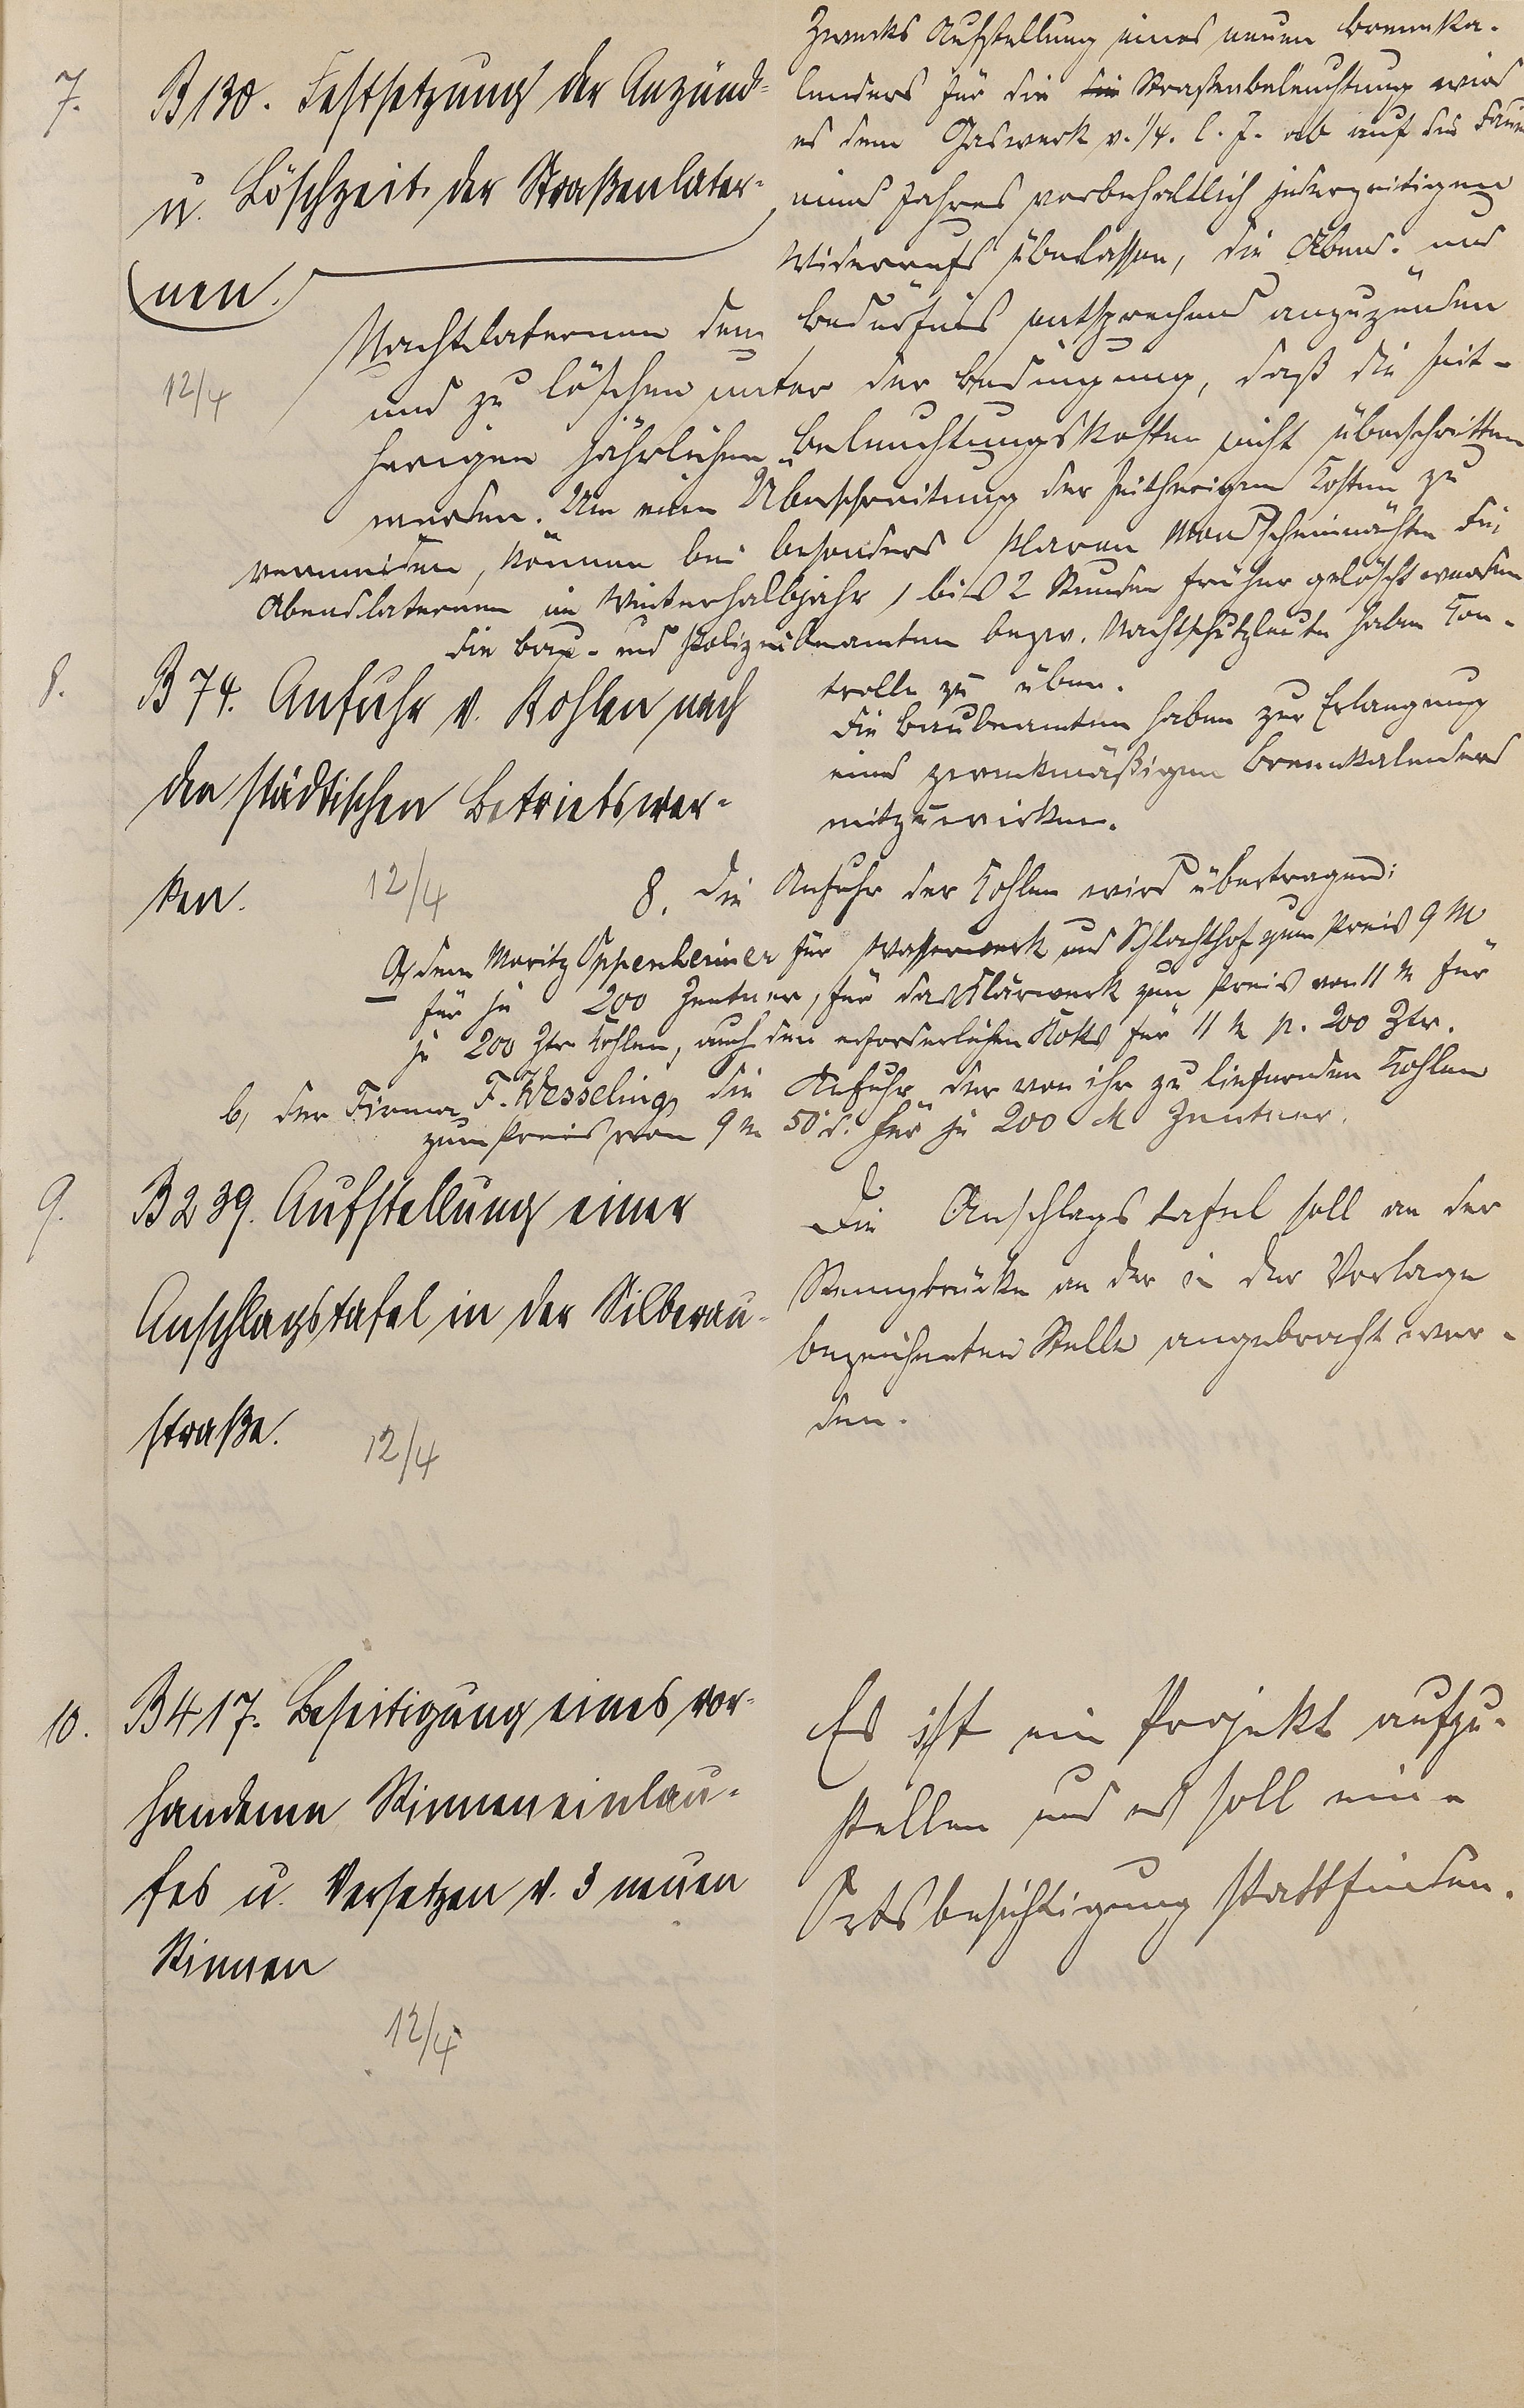 7.
B 130. Festsetzung der Anzünd-
u. Löschzeit der Straßenlater-
nen.
12/4
Zwecks Aufstellung eines neuen Brennka-
lenders für die die Strassenbeleuchtung wird
es dem Gaswerk v. 1/4. l. J. ab auf die Dauer
eines Jahres vorbehaltlich jederzeitigen
Widerrufs überlassen, die Abend- und
Nachtlaternen dem Bedürfnis entsprechend anzuzünden
und zu löschen unter der Bedingung, daß die seit-
herigen jährlichen Beleuchtungskosten nicht überschritten
werden. Um eine Überschreitung der seitherigen Kosten zu
vermeiden, können bei besonders klaren Mondscheinnächten die
Abendlaternen im Winterhalbjahr 1 bis 2 Stunden früher gelöscht werden
Die Bau- und Polizeibeamten bezw. Nachtschutzleute haben Kon-
trolle zu üben.
Die Baubeamten haben zur Erlangung
eines zweckmäßigen Brennkalenders
mitzuwirken.
8.
B 74. Anfuhr v. Kohlen nach
den städtischen Betriebswer-
ken.
12/4
8. Die Anfuhr der Kohlen wird übertragen:
a, dem Moritz Oppenheimer für Wasserwerk und Schlachthof zum Preis 9 M
für je 200 Zentner, für das Klärwerk zum Preis von 11 M für
je 200 Ztr Kohlen, auch den erforderlichen Koks für 11 M p. 200 Ztr.
b, der Firma F. Wesseling die Anfuhr der von ihr zu liefernden Kohlen
zum Preis von 9 M 50 d. für je 200 M Zentner.
9.
B 239. Aufstellung einer
Anschlagstafel in der Silberau-
straße.
12/4
Die Anschlagstafel soll an der
an der in der Vorlage
bezeichneten Stelle angebracht wer-
den.
10.
B 417. Beseitigung eines vor-
handenen Rinneneinlau-
fes u. Versetzen v. 3 neuen
Rinnen
12/4
Es ist ein Projekt aufzu-
stellen und es soll eine
Ortsbesichtigung stattfinden.